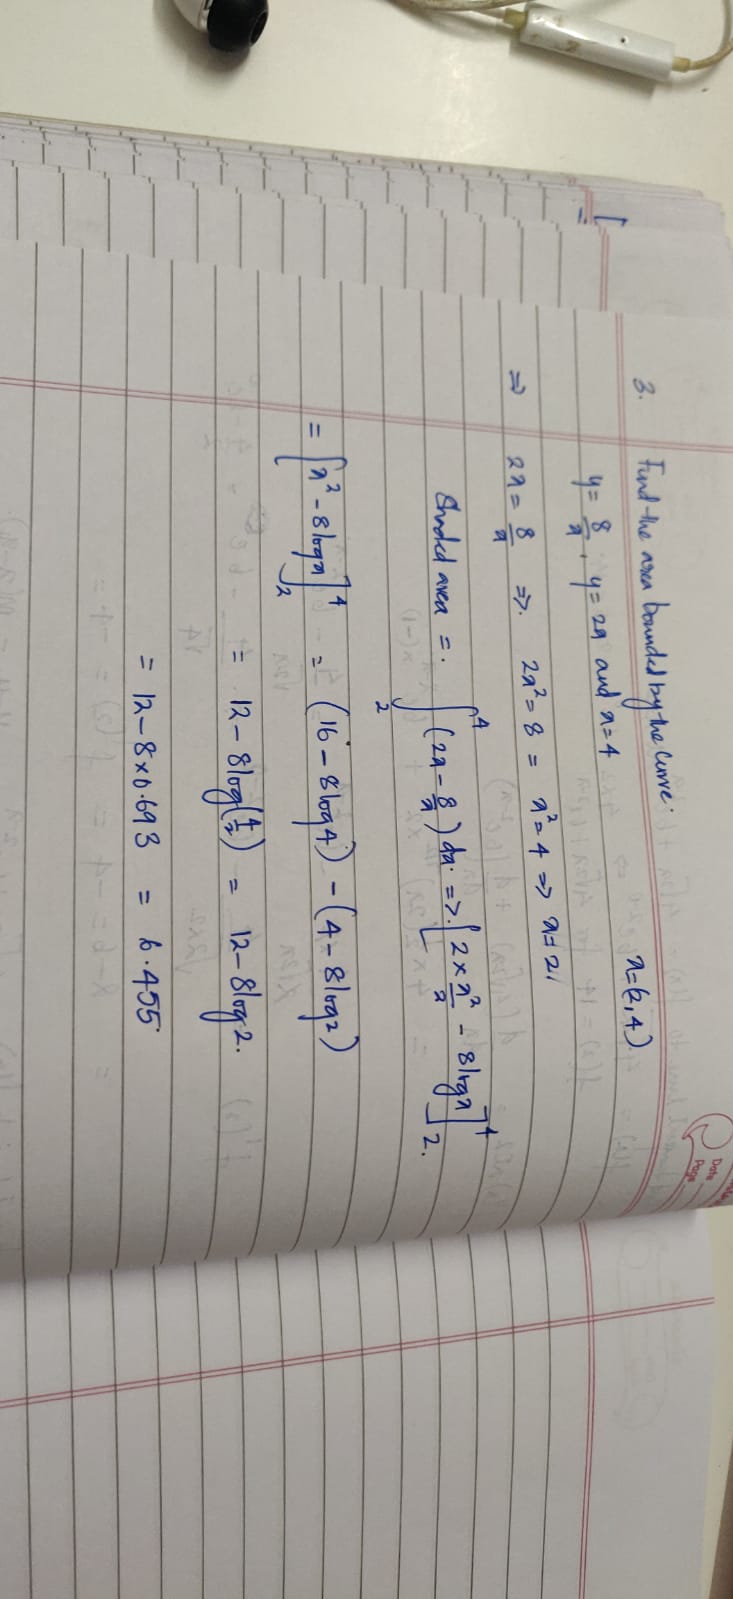 Date
Page
3. Find the area bounded by the curve.
y = 8/x, y = 2x and x = 4 x = (2, 4)
⇒ 2x = 8/x ⇒ 2x² = 8 = x² = 4 ⇒ x = 2
Shaded area = ∫₂⁴ (2x - 8/x) dx ⇒ [2 × x²/2 - 8 log x]₂⁴
= [x² - 8 log x]₂⁴ = (16 - 8 log 4) - (4 - 8 log 2)
= 12 - 8 log (4/2) = 12 - 8 log 2.
= 12 - 8 × 0.693 = 6.455